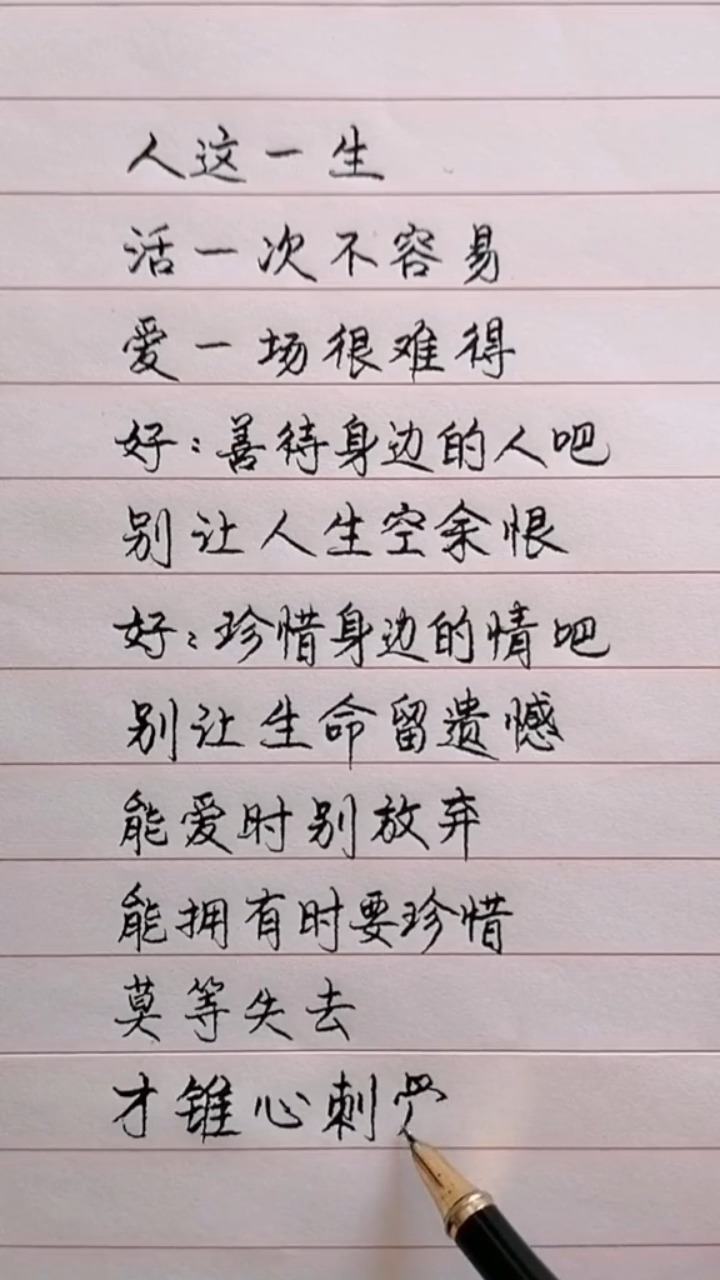 人这一生
活一次不容易
爱一场很难得
好:善待身边的人吧
别让人生空余恨
好:珍惜身边的情吧
别让生命留遗憾
能爱时别放弃
能拥有时要珍惜
莫等失去
才锥心刺